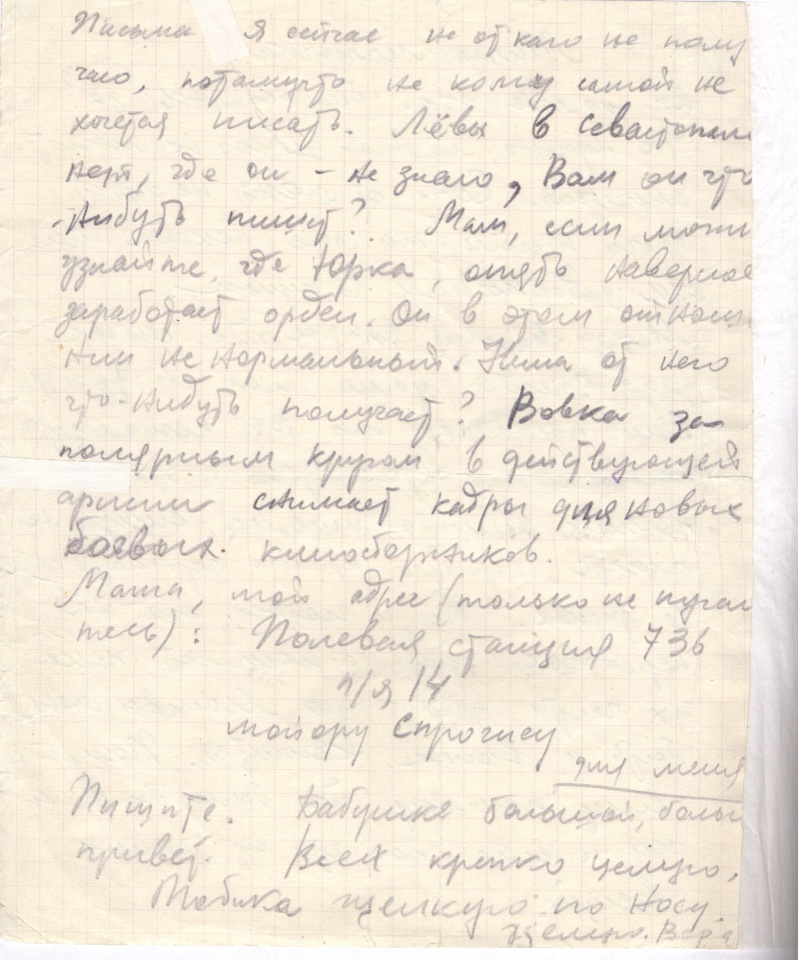 Письма я сейчас не от кого не полу
чаю, потамучто не кому самой не
хочется писать. Лёвы в Севастопол
нет, где он - не знаю, Вам он что
-нибуть пишет? Мам, если можн
узнайте, где Юрка, опять наверное
заработает орден. Он в этом отнош
нии не нормальный. Нина от него
что-нибуть получает? Вовка за
полярным кругом в действующей
армии снимает кадры для новых
боевых киносборников.
Маша, мой адрес (только не пугай
тесь): Полевая станция 736
п/я 14
майору Спрогису
для меня
Пишите. Бабушке большой, больш
привет. Всех крепко целую,
Тобика щелкую по носу.
Целую. Вера